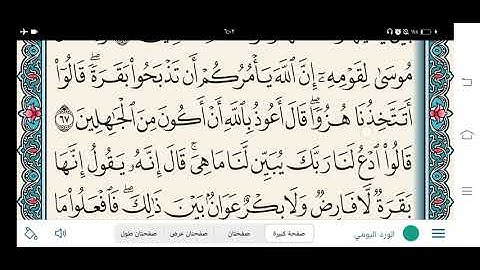 ٦:٠٢
مُوسَىٰ لِقَوْمِهِۦٓ إِنَّ ٱللَّهَ يَأْمُرُكُمْ أَن تَذْبَحُوا۟ بَقَرَةً ۖ قَالُوٓا۟
أَتَتَّخِذُنَا هُزُوًا ۖ قَالَ أَعُوذُ بِٱللَّهِ أَنْ أَكُونَ مِنَ ٱلْجَٰهِلِينَ ٦٧
قَالُوا۟ ٱدْعُ لَنَا رَبَّكَ يُبَيِّن لَّنَا مَا هِىَ ۚ قَالَ إِنَّهُۥ يَقُولُ إِنَّهَا
بَقَرَةٌ لَّا فَارِضٌ وَلَا بِكْرٌ عَوَانٌۢ بَيْنَ ذَٰلِكَ ۖ فَٱفْعَلُوا۟ مَا
الورد اليومي صفحة كبيرة صفحتان صفحتان عرض صفحتان طول